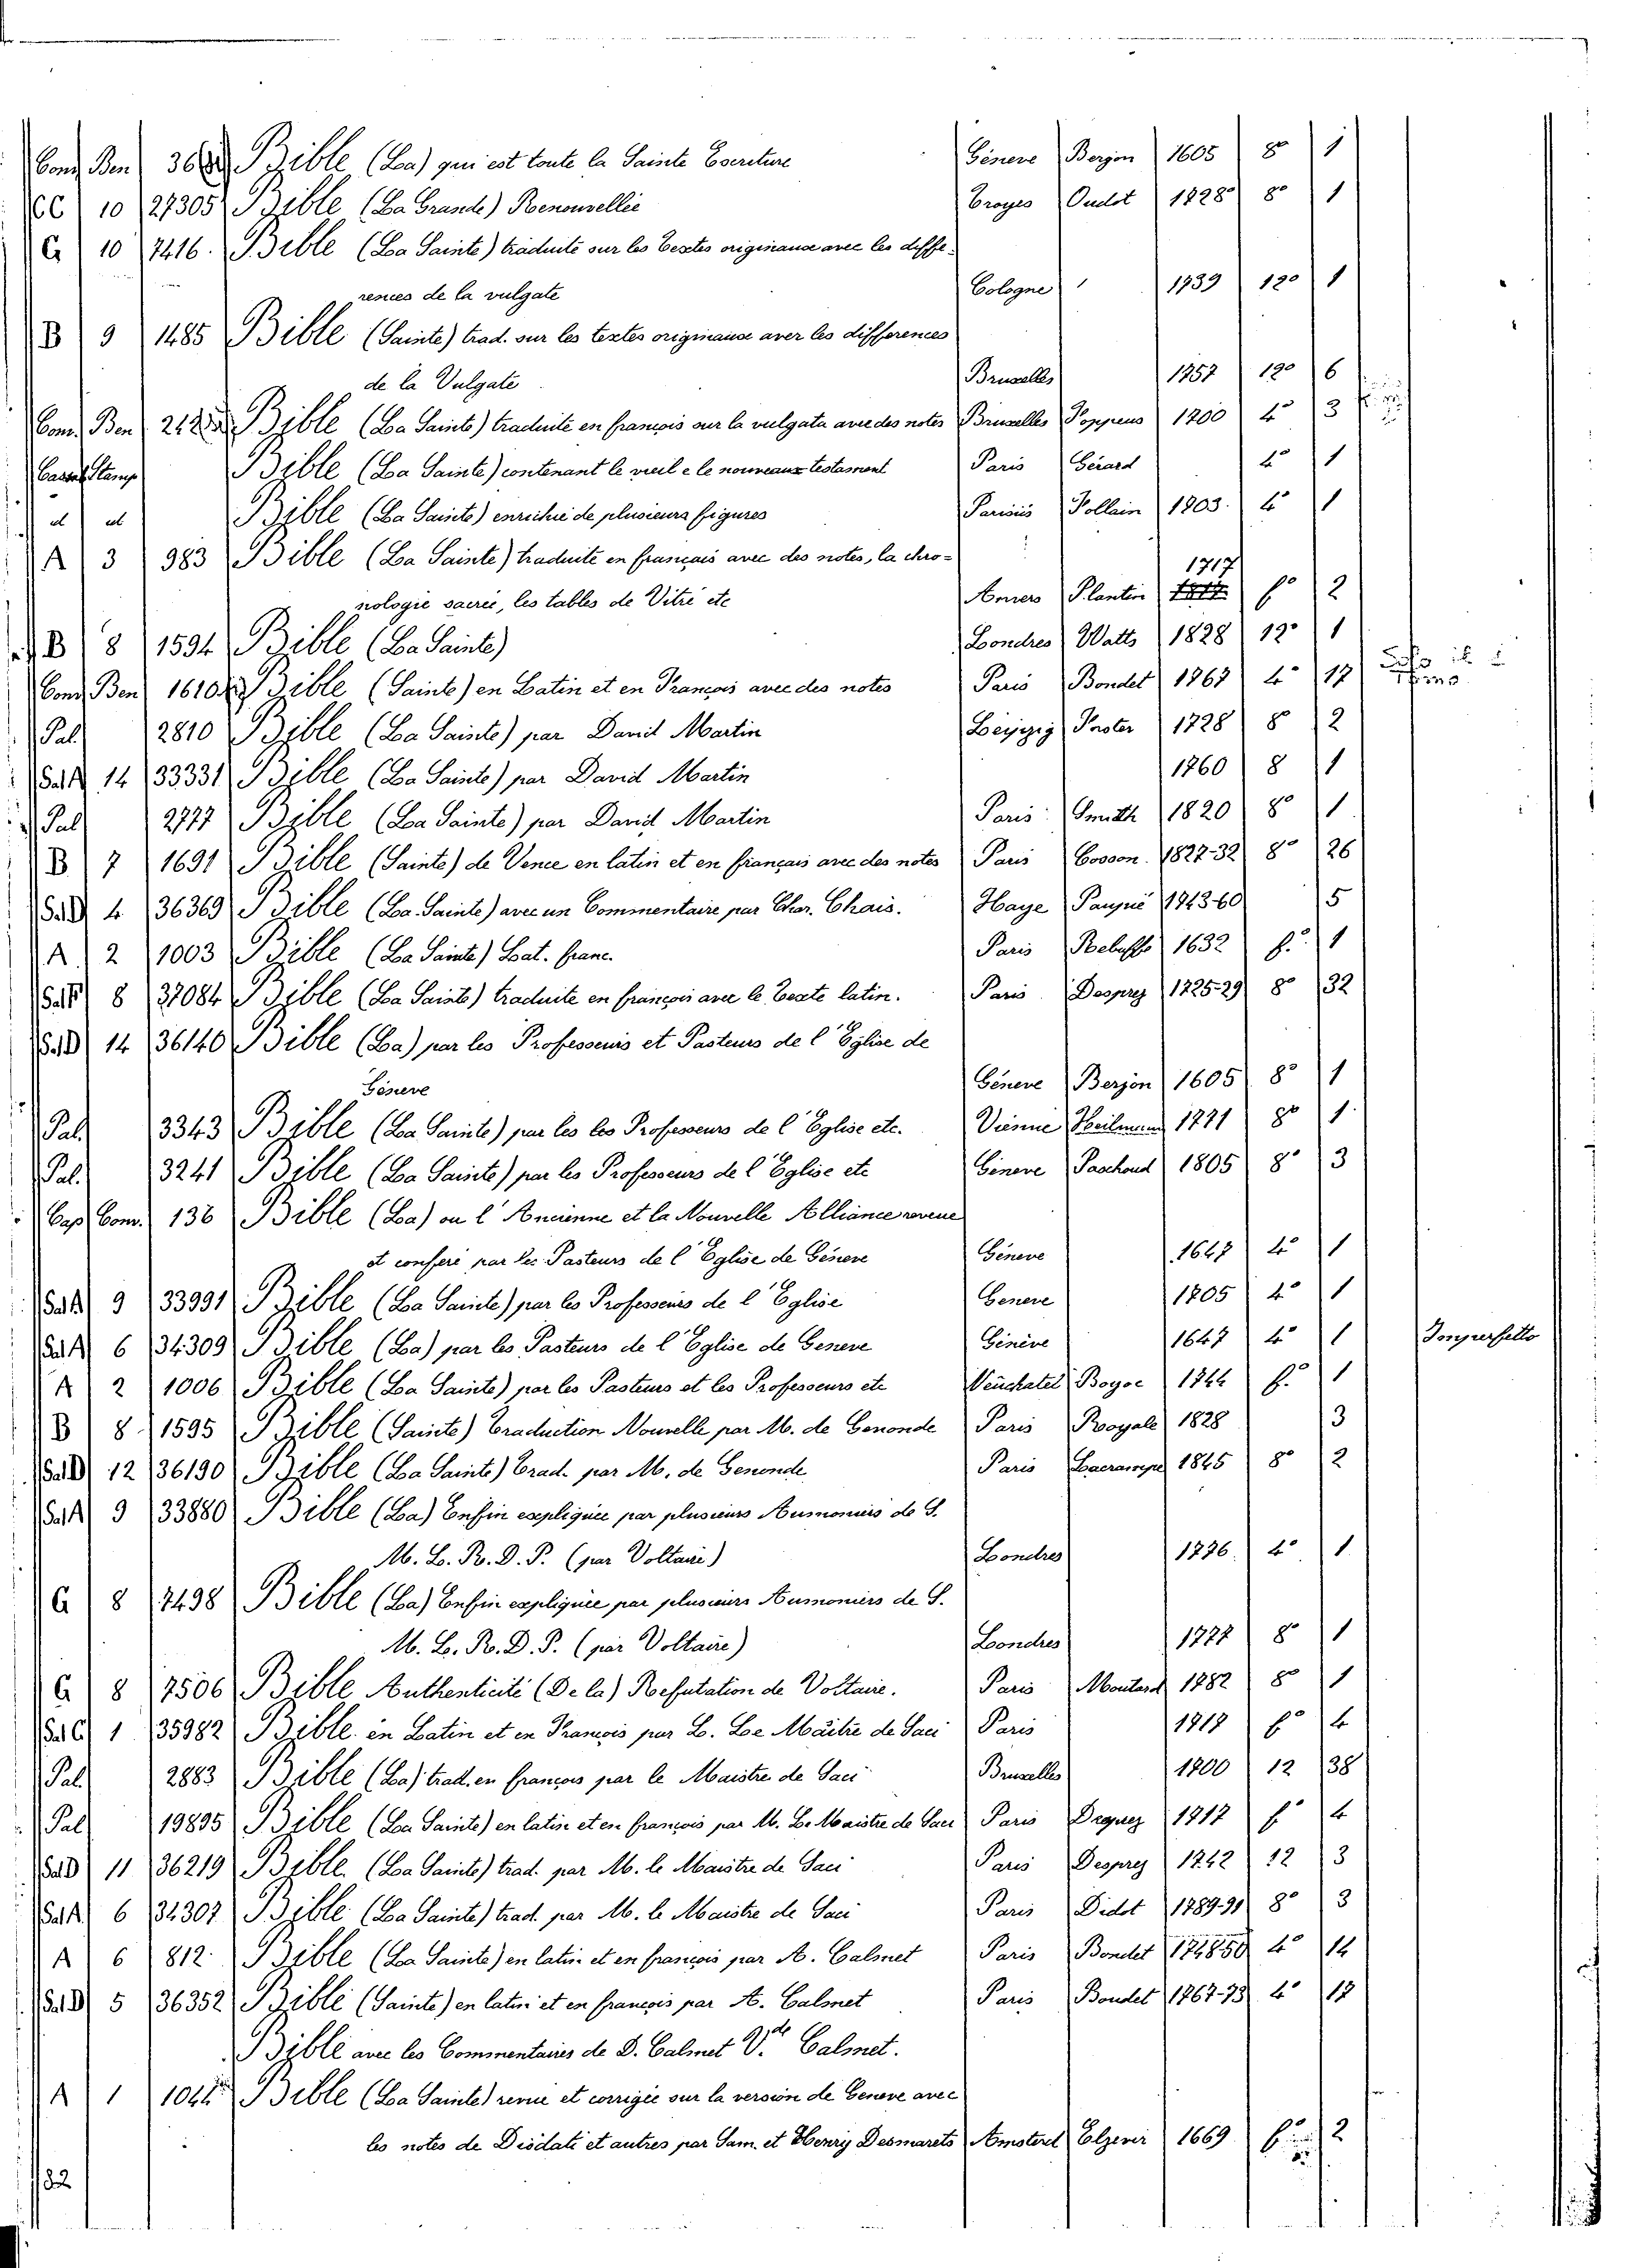 Cons Ben 36 Bible (La) qui est toute la Sainte Escriture Géneve Berjon 1605 8° 1
CC 10 27305 Bible (La Grande) Renouvellée Troyes Oudot 1728 8° 1
G 10 7416. Bible (La Sainte) traduite sur les textes originaux avec les diffe-
rences de la vulgate Cologne 1739 12° 1
B 9 1485 Bible (Sainte) trad. sur les textes originaux aver les differences
de la Vulgate Bruxelles 1757 12° 6
Com. Ben Bible (La Sainte) traduite en françois sur la vulgata avec des notes Bruxelles Foppens 1700 4° 3
Stamp Bible (La Sainte) contenant le vieil e le nouveaux testament Paris Gérard 4° 1
id id Bible (La Sainte) enrichie de plusieurs figures Parisiis Pollain 1703. 4° 1
A 3 983 Bible (La Sainte) traduite en français avec des notes, la chro=
nologie sacrée, les tables de Vitré etc Anvers Plantin 1717 f° 2
B 8 1594 Bible (La Sainte) Londres Watts 1828 12° 1
Cons Ben 1610 Bible (Sainte) en Latin et en François avec des notes Paris Boudet 1767 4° 17
Pal. 2810 Bible (La Sainte) par David Martin Leipzig 1728 8° 2
Sal A 14 33331 Bible (La Sainte) par David Martin 1760 8 1
Pal 2777 Bible (La Sainte) par David Martin Paris Smith 1820 8° 1
B 7 1691 Bible (Sainte) de Vence en latin et en français avec des notes Paris Cosson 1827-32 8° 26
Sal D 4 36369 Bible (La Sainte) avec un Commentaire par Char. Chais. Haye Paupié 1743-60 5
A 2 1003 Bible (La Sainte) Lat. franc. Paris 1632 f.° 1
8 37084 Bible (La Sainte) traduite en françois avec le Texte latin. Paris Desprez 1725-29 8° 32
Sal D 14 36140 Bible (La) par les Professeurs et Pasteurs de l'Eglise de
Géneve Géneve Berjon 1605 8° 1
Pal. 3343 Bible (La Sainte) par les les Professeurs de l'Eglise etc. Vienne 1771 8° 1.
Pal. 3241 Bible (La Sainte) par les Professeurs de l'Eglise etc Géneve Paschoud 1805 8° 3
Cap Conv. 136 Bible (La) ou l'Ancienne et la Nouvelle Alliance reveue
et conferé par les Pasteurs de l'Eglise de Géneve Géneve 4° 1
Sal A 9 33991 Bible (La Sainte) par les Professeurs de l'Eglise Geneve 1705 4° 1
Sal A 6 34309 Bible (La) par les Pasteurs de l'Eglise de Geneve Génève 1647 4° 1 Imperfetto
A 2 1006 Bible (La Sainte) par les Pasteurs et les Professeurs etc Neuchatel 1744 f.° 1
B 8. 1595 Bible (Sainte) Traduction Nouvelle par M. de Genonde Paris Royale 1828 3
Sal D 12 36190 Bible (La Sainte) Trad. par M. de Genonde Paris Lacrampe 1845 8° 2
Sal A 9 33880 Bible (La) Enfin expliquée par plusieurs Aumoniers de S.
M. L. R. D. P. (par Voltaire) Londres 1776. 4° 1.
G 8 7498 Bible (La) Enfin expliquée par plusieurs Aumoniers de S.
M. L. R. D. P. (par Voltaire) Londres 1777 8° 1
G 8 7506 Bible Authenticité (De la) Refutation de Voltaire. Paris Moutard 1782 8° 1
Sal C 1 35982 Bible en Latin et en François par L. Le Maitre de Saci Paris 1717 f° 4
Pal. 2883 Bible (La) trad. en françois par le Maistre de Saci Bruxelles 1700 12 38
Pal 19895 Bible (La Sainte) en latin et en françois par M. Le Maistre de Saci Paris 1717 f° 4
Sal D 11 36219 Bible. (La Sainte) trad. par M. le Maistre de Saci Paris Desprez 1742 12 3
Sal A 6 34307 Bible (La Sainte) trad. par M. le Maistre de Saci Paris Didot 1789-91 8° 3
A 6 812. Bible (La Sainte) en latin et en françois par A. Calmet Paris Boudet 1748-50 4° 14
Sal D 5 36352 Bible (Sainte) en latin et en françois par A. Calmet Paris Boudet 1767-73 4° 17
Bible avec les Commentaires de D. Calmet V.de Calmet.
A 1 Bible (La Sainte) revue et corrigée sur la version de Geneve avec
les notes de Diodati et autres par Sam. et Henry Desmarets Amsterd Elzevir 1669 f.° 2
82